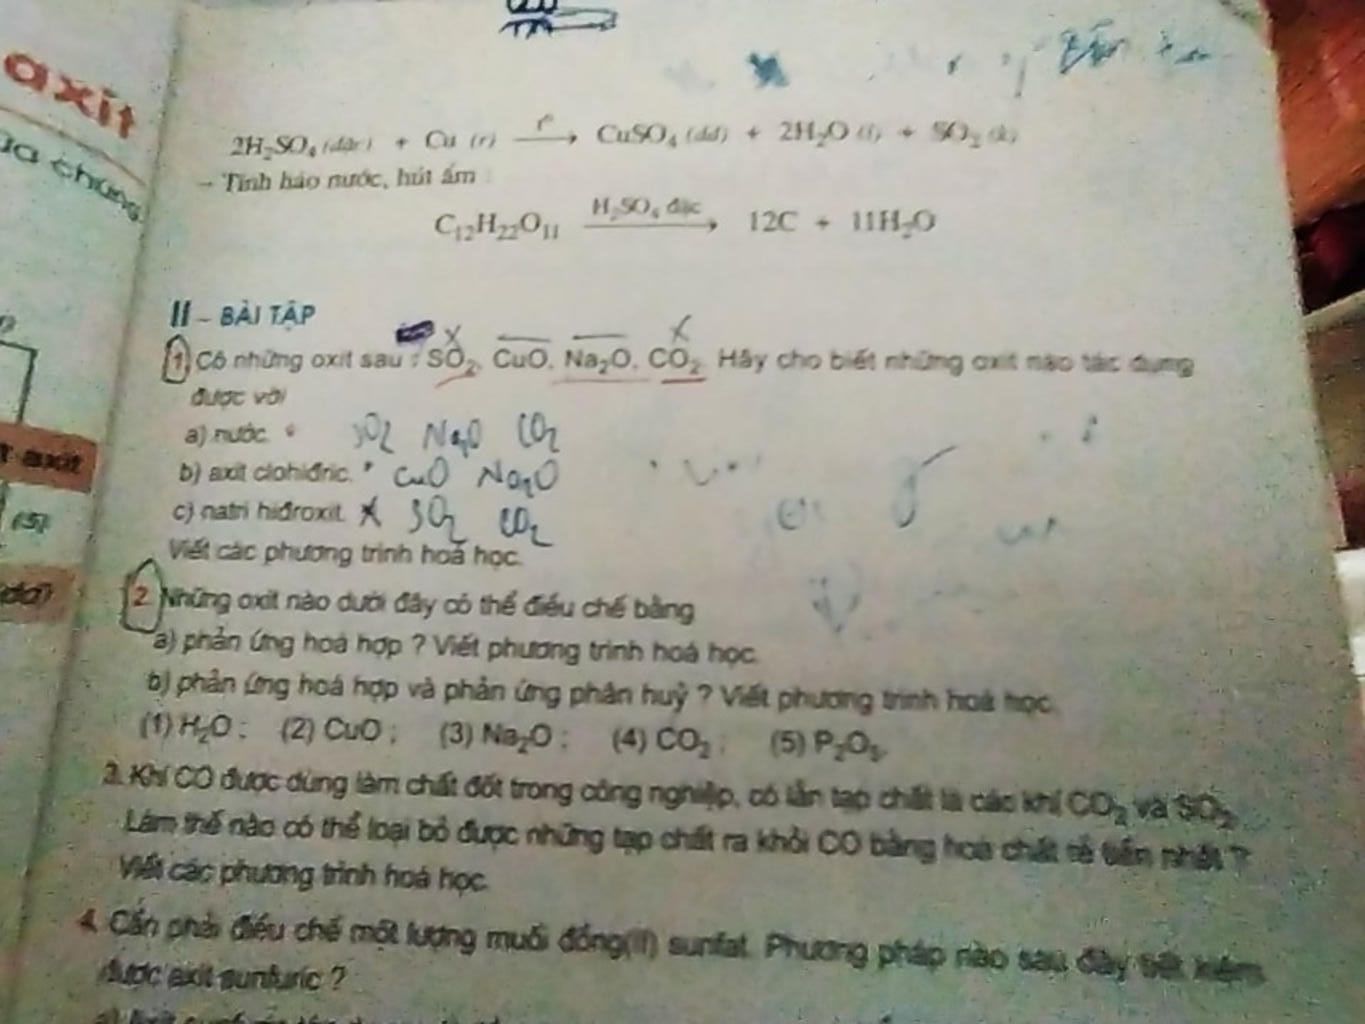 axit
2H₂SO₄ (đặc) + Cu (r) —t°→ CuSO₄ (dd) + 2H₂O (l) + SO₂ (k)
– Tính háo nước, hút ẩm :
C₁₂H₂₂O₁₁ —H₂SO₄ đặc→ 12C + 11H₂O
II – BÀI TẬP
1. Có những oxit sau : SO₂, CuO, Na₂O, CO₂. Hãy cho biết những oxit nào tác dụng
được với
a) nước. SO₂ Na₂O CO₂
b) axit clohiđric. CuO Na₂O
c) natri hiđroxit. SO₂ CO₂
Viết các phương trình hoá học.
2. Những oxit nào dưới đây có thể điều chế bằng
a) phản ứng hoá hợp ? Viết phương trình hoá học.
b) phản ứng hoá hợp và phản ứng phân huỷ ? Viết phương trình hoá học.
(1) H₂O ; (2) CuO ; (3) Na₂O ; (4) CO₂ ; (5) P₂O₅.
3. Khí CO được dùng làm chất đốt trong công nghiệp, có lẫn tạp chất là các khí CO₂ và SO₂.
Làm thế nào có thể loại bỏ được những tạp chất ra khỏi CO bằng hoá chất rẻ tiền nhất ?
Viết các phương trình hoá học.
4. Cần phải điều chế một lượng muối đồng(II) sunfat. Phương pháp nào sau đây tiết kiệm
được axit sunfuric ?